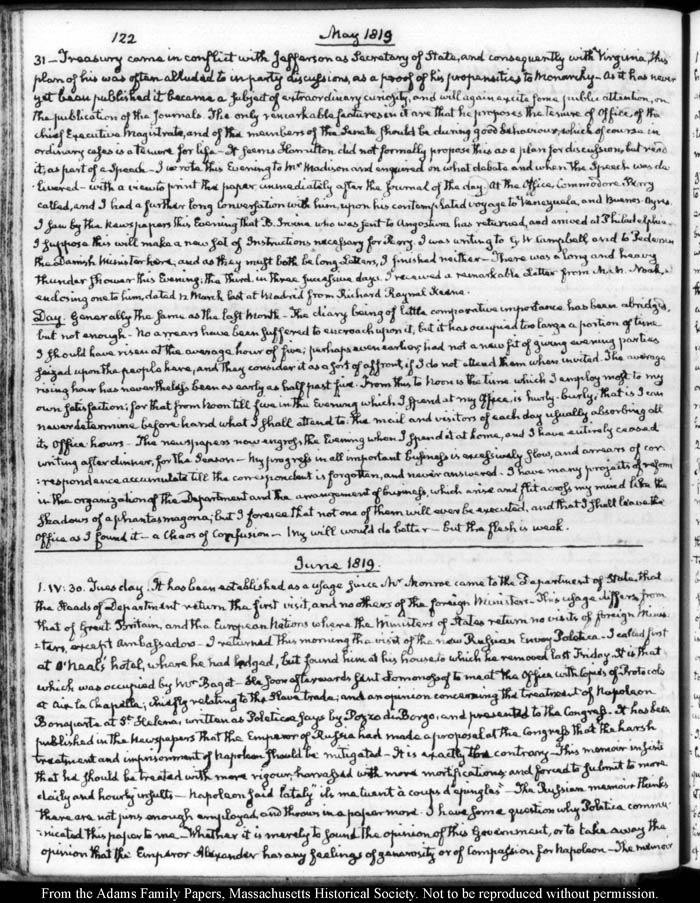 122 May 1819
31 – Treasury came in conflict with Jefferson as Secretary of State, and consequently with Virginia, this
plan of his was often alluded to in party discussions, as a proof of his propensities to Monarchy – As it has never
yet been published it became a subject of extraordinary curiosity, and will again excite some public attention, on
the publication of the Journals. The only remarkable features in it are that he proposes the tenure of Office, of the
chief Executive Magistrate, and of the members of the Senate should be during good behaviour, which of course in
ordinary cases is a tenure for life – It seems Hamilton did not formally propose this as a plan for discussion, but read
it, as part of a Speech – I wrote this Evening to Mr Madison and enquired on what debate and when the Speech was de
livered – with a view to print the paper, immediately after the Journal of the day. At the Office, Commodore Perry
called, and I had a further long conversation with him, upon his contemplated voyage to Venezuela, and Buenos Ayres.
I saw by the Newspapers this Evening that B. Irvine who was sent to Angostura has returned, and arrived at Philadelphia.
I suppose this will make a new set of Instructions necessary for Perry. I was writing to G W Campbell, and to Pedersen
the Danish Minister here, and as they must both be long Letters, I finished neither – There was a long and heavy
thunder shower this Evening; the third in three successive days. I received a remarkable Letter from M. M. Noah,
enclosing one to him, dated 12 March last at Madrid from Richard Raynal Keene.
Day. Generally the same as the last Month – The diary being of little comparative importance has been abridged,
but not enough – No arrears have been suffered to encroach upon it, but it has occupied too large a portion of time
I should have risen at the average hour of five; perhaps even earlier, had not a new fit of giving evening parties
seized upon the people here, and they consider it as a sort of affront, if I do not attend them when invited. The average
rising hour has nevertheless been as early as half past five. From this to Noon is the time which I employ most to my
own satisfaction; for that from Noon till five in the Evening which I spend at my Office, is hurly-burly, that is I can
never determine before hand what I shall attend to: the mail and visitors of each day usually absorbing all
its Office hours – The newspapers now engross the Evening when I spend it at home, and I have entirely ceased
writing after dinner, for the Season – My progress in all important business is excessively slow, and arrears of cor:
:respondence accumulate till the correspondent is forgotten, and never answered – I have many projects of reform
in the organization of the Department and the arrangement of business, which arise and flit across my mind like the
shadows of a phantasmagoria; but I foresee that not one of them will ever be executed, and that I shall leave the
Office as I found it – a Chaos of Confusion – My will would do better – but the flesh is weak.
June 1819.
1. IV: 30. Tuesday. It has been established as a usage since Mr Monroe came to the Department of State, that
the Heads of Department return the first visit, and no others of the foreign Ministers – This usage differs from
that of Great Britain, and the European Nations where the Ministers of States return no visits of foreign Minis
:ters, except Ambassadors – I returned this morning the visit of the new Russian Envoy Poletica – I called first
at O'Neal's hotel, where he had lodged, but found him at his house to which he removed last Friday. It is that
which was occupied by Mr Bagot – He soon afterwards sent to me at the Office with Copies of Protocols
at Aix la Chapelle; chiefly relating to the Slave trade; and an opinion concerning the treatment of Napoleon
Bonaparte at St Helena, written as Poletica says by Pozzo di Borgo, and presented to the Congress. It has been
published in the Newspapers that the Emperor of Russia had made a proposal at the Congress that the harsh
treatment and imprisonment of Napoleon should be mitigated – It is exactly the contrary – This memoir insists
that he should be treated with more rigour, harassed with more mortifications, and forced to submit to more
daily and hourly insults – Napoleon said lately "ils me tuent à coups d'épingles" – The Russian memoir thinks
there are not pins enough employed, and throws in a paper more. I have some question why Poletica commu
:nicated this paper to me – Whether it is merely to sound the opinion of this Government, or to take away the
opinion that the Emperor Alexander has any feelings of generosity or of Compassion for Napoleon – The memoir
From the Adams Family Papers, Massachusetts Historical Society. Not to be reproduced without permission.